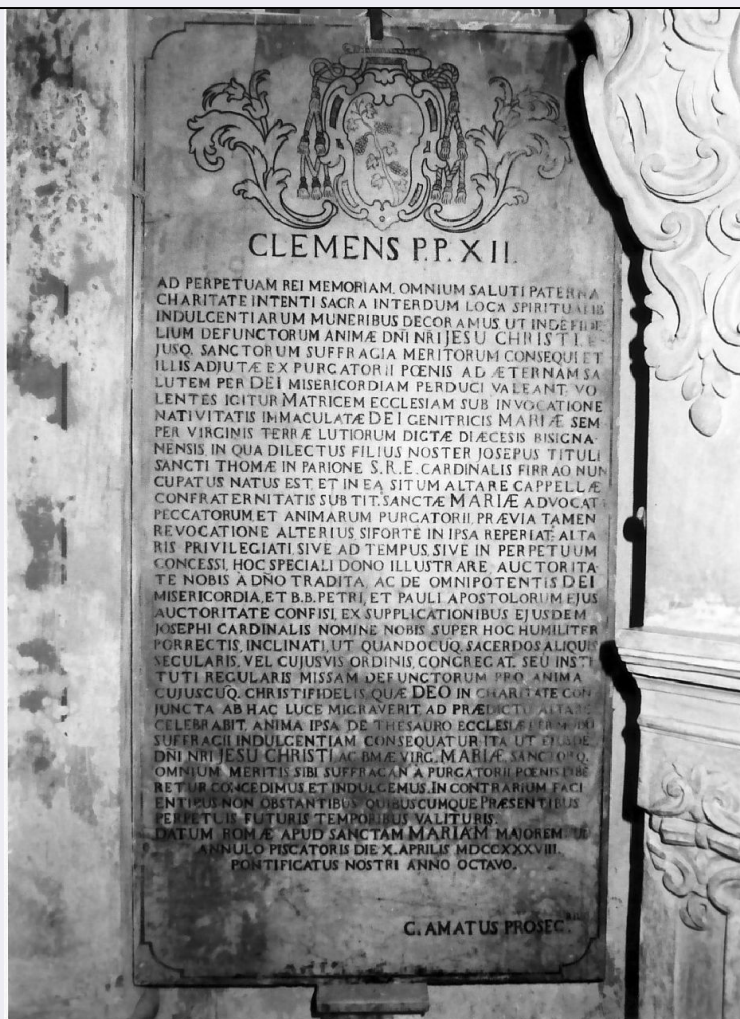 CLEMENS P.P. XII.
AD PERPETUAM REI MEMORIAM. OMNIUM SALUTI PATERNA
CHARITATE INTENTI SACRA INTERDUM LOCA SPIRITUALIB
INDULGENTIARUM MUNERIBUS DECORAMUS, UT INDE FIDE
LIUM DEFUNCTORUM ANIMÆ DÑI NRI JESU CHRISTI, E-
JUSQ. SANCTORUM SUFFRAGIA MERITORUM CONSEQUI ET
ILLIS ADJUTÆ EX PURGATORII PŒNIS AD ÆTERNAM SA
LUTEM PER DEI MISERICORDIAM PERDUCI VALEANT. VO
LENTES IGITUR MATRICEM ECCLESIAM SUB INVOCATIONE
NATIVITATIS IMMACULATÆ DEI GENITRICIS MARIÆ SEM
PER VIRGINIS TERRÆ LUTIORUM DICTÆ DIÆCESIS BISIGNA-
NENSIS, IN QUA DILECTUS FILIUS NOSTER JOSEPUS TITULI
SANCTI THOMÆ IN PARIONE S.R.E. CARDINALIS FIRRAO NUN
CUPATUS NATUS EST, ET IN EA SITUM ALTARE CAPPELLÆ
CONFRATERNITATIS SUB TIT. SANCTÆ MARIÆ ADVOCAT.
PECCATORUM, ET ANIMARUM PURGATORII, PRÆVIA TAMEN
REVOCATIONE ALTERIUS SIFORTE IN IPSA REPERIAT. ALTA
RIS PRIVILEGIATI, SIVE AD TEMPUS, SIVE IN PERPETUUM
CONCESSI, HOC SPECIALI DONO ILLUSTRARE, AUCTORITA
TE NOBIS A DÑO TRADITA, AC DE OMNIPOTENTIS DEI
MISERICORDIA, ET B.B. PETRI, ET PAULI APOSTOLORUM EJUS
AUCTORITATE CONFISI, EX SUPPLICATIONIBUS EJUSDEM
JOSEPHI CARDINALIS NOMINE NOBIS SUPER HOC HUMILITER
PORRECTIS, INCLINATI, UT QUANDOCUQ. SACERDOS ALIQUIS
SECULARIS, VEL CUJUSVIS ORDINIS, CONGREGAT. SEU INSTI
TUTI REGULARIS MISSAM DEFUNCTORUM PRO ANIMA
CUJUSCUQ. CHRISTIFIDELIS, QUÆ DEO IN CHARITATE CON
JUNCTA AB HAC LUCE MIGRAVERIT AD PRÆDICTU ALTARE
CELEBRABIT, ANIMA IPSA DE THESAURO ECCLESIÆ PER MODU
SUFFRAGII INDULGENTIAM CONSEQUATUR ITA UT EJUSDE
DÑI NRI JESU CHRISTI AC BMÆ VIRG. MARIÆ SANCTORQ.
OMNIUM MERITIS SIBI SUFFRAGAN A PURGATORII PŒNIS LIBE
RETUR CONCEDIMUS ET INDULGEMUS. IN CONTRARIUM FACI
ENTIBUS NON OBSTANTIBUS QUIBUSCUMQUE PRÆSENTIBUS
PERPETUIS FUTURIS TEMPORIBUS VALITURIS.
DATUM ROMÆ APUD SANCTAM MARIAM MAJOREM
ANNULO PISCATORIS DIE X. APRILIS MDCCXXXVIII.
PONTIFICATUS NOSTRI ANNO OCTAVO.
C. AMATUS PROSEC.